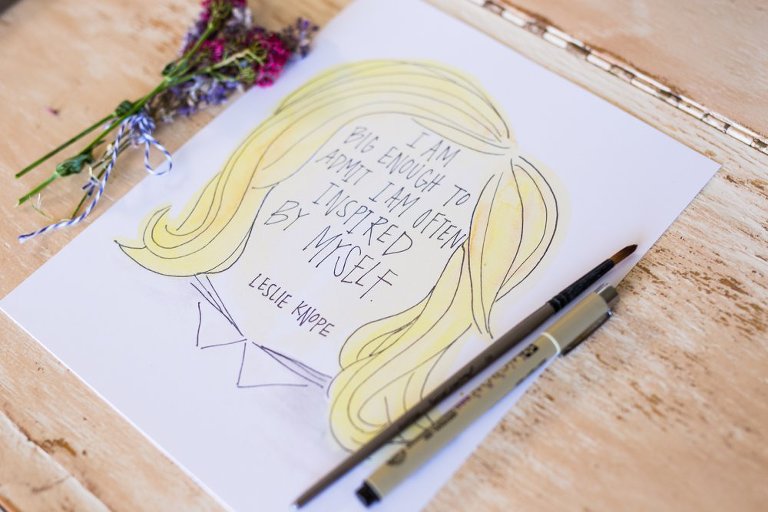 I AM
BIG ENOUGH TO
ADMIT I AM OFTEN
INSPIRED
BY MYSELF.
LESLIE KNOPE